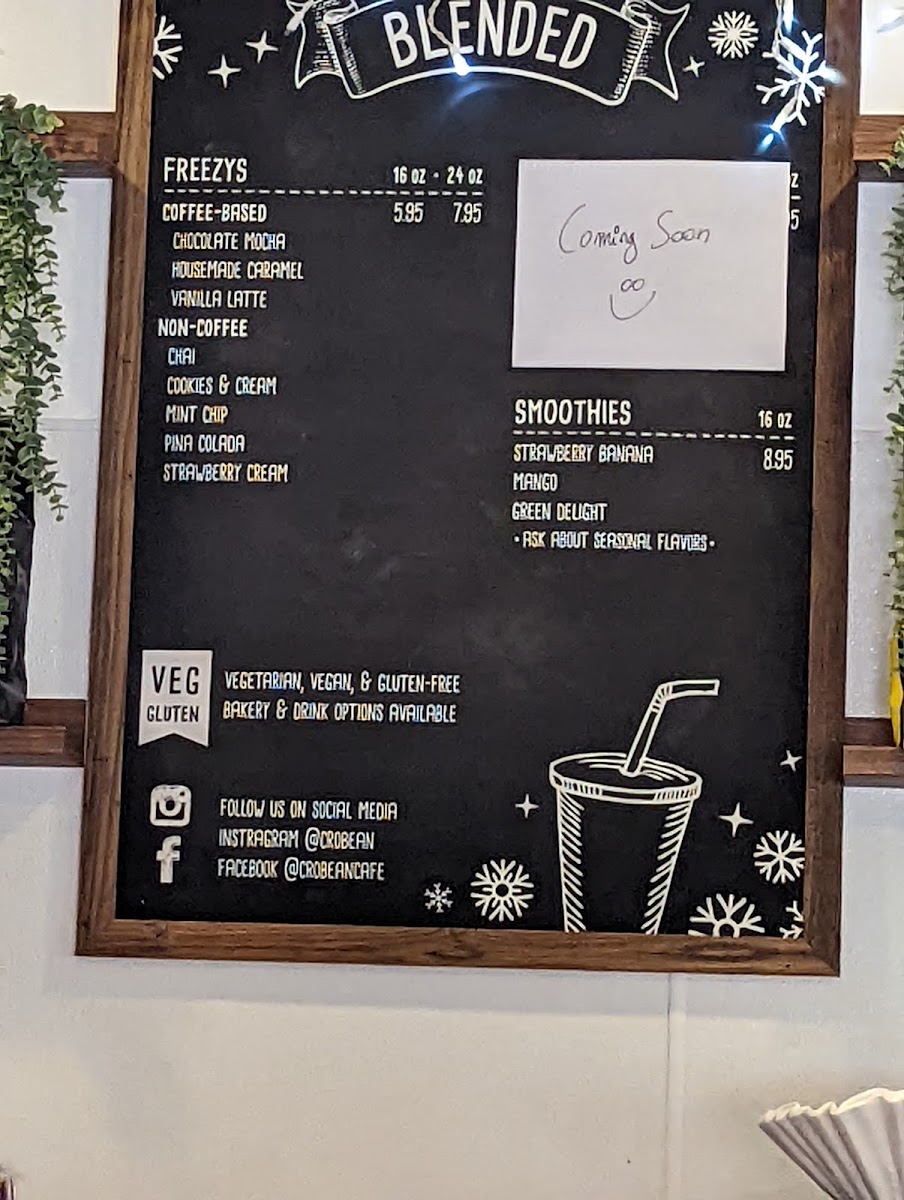 BLENDED
FREEZYS 16 OZ · 24 OZ
COFFEE-BASED 5.95 7.95
CHOCOLATE MOCHA
HOUSEMADE CARAMEL
VANILLA LATTE
NON-COFFEE
CHAI
COOKIES & CREAM
MINT CHIP
PINA COLADA
STRAWBERRY CREAM
Coming Soon
SMOOTHIES 16 OZ
STRAWBERRY BANANA 8.95
MANGO
GREEN DELIGHT
· ASK ABOUT SEASONAL FLAVORS ·
VEG
GLUTEN
VEGETARIAN, VEGAN, & GLUTEN-FREE
BAKERY & DRINK OPTIONS AVAILABLE
FOLLOW US ON SOCIAL MEDIA
INSTRAGRAM @CROBEAN
FACEBOOK @CROBEANCAFE